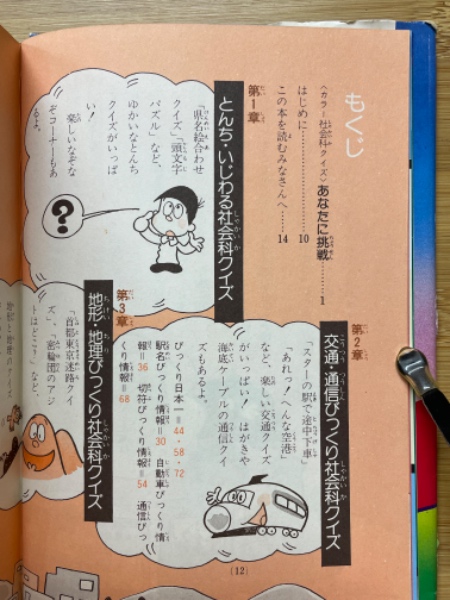 もくじ
〈カラー社会科クイズ〉あなたに挑戦……1
はじめに……10
この本を読むみなさんへ……14
第1章
とんち・いじわる社会科クイズ
「県名絵合わせ
パズル」「頭文字
クイズ」など、
ゆかいなとんち
クイズがいっぱ
い!
楽しいなぞな
ぞコーナーもあ
るよ。
?
第2章
交通・通信びっくり社会科クイズ
「スターの駅で途中下車」
「あれっ!へんな空港」
など、楽しい交通クイズ
がいっぱい! はがきや
海底ケーブルの通信クイ
ズもあるよ。
びっくり日本一=44・58・72
駅名びっくり情報=30 自動車びっくり情
報=36 切符びっくり情報=54 通信びっ
くり情報=68
第3章
地形・地理びっくり社会科クイズ
「首都東京迷路クイ
ズ」、「密輸団のアジ
トはどこ?」など、
地形と地理のクイズ
(12)